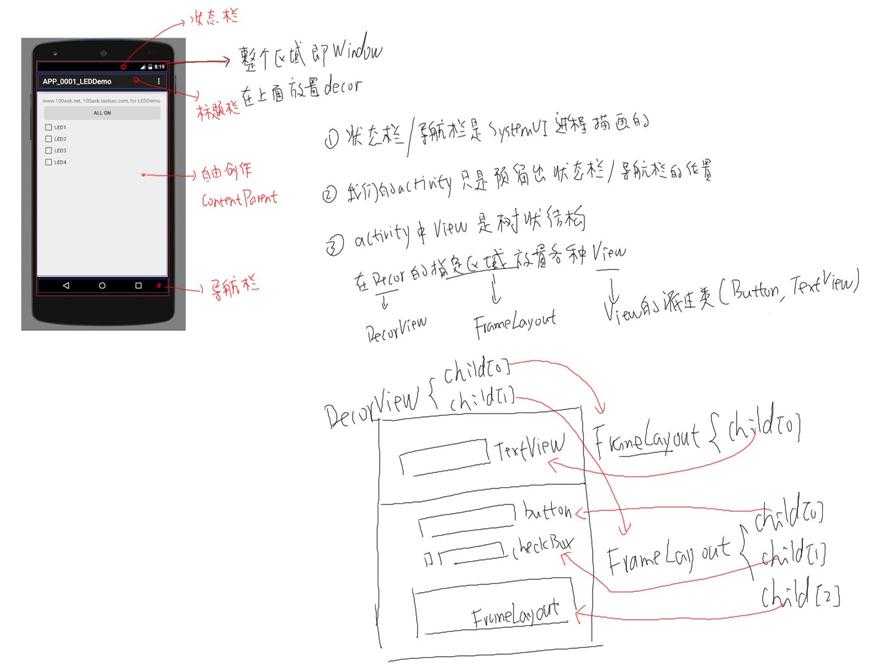 状态栏
整个区域即Window
在上面放置decor
标题栏
8:19
APP_0001_LEDDemo
www.100ask.net, 100ask.taobao.com, for LEDDemo
ALL ON
LED1
LED2
LED3
LED4
自由创作
ContentParent
导航栏
① 状态栏/导航栏是SystemUI进程描画的
② 我们的activity只是预留出状态栏/导航栏的位置
③ activity中View是树状结构
在Decor的指定区域放置各种View
DecorView
FrameLayout
View的派生类(Button,TextView)
DecorView { child[0]
child[1]
TextView
FrameLayout { child[0]
button
checkBox
FrameLayout
FrameLayout { child[0]
child[1]
child[2]